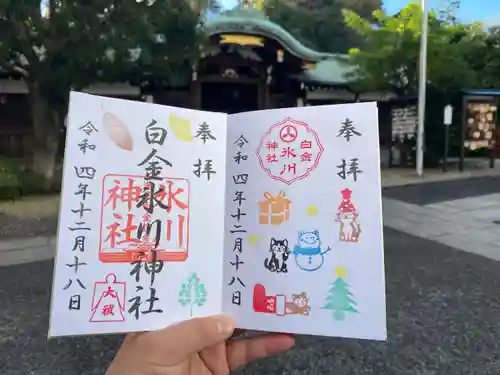 奉拝
白金氷川神社
氷川
神社
大祓
令和四年十二月十八日
奉拝
白金
氷川
神社
令和四年十二月十八日